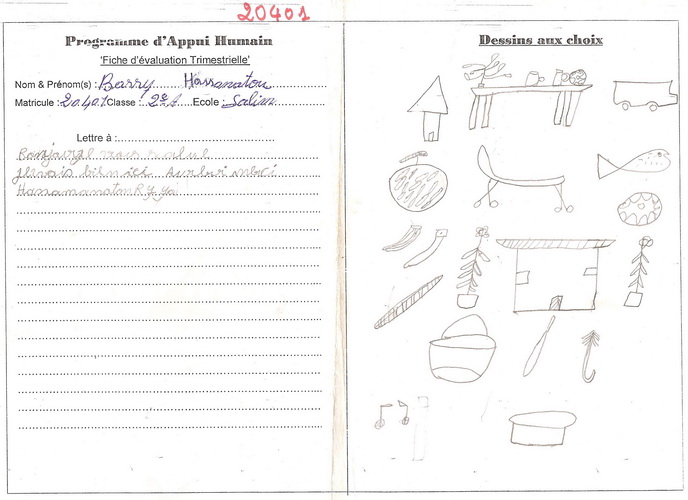 20401
Programme d'Appui Humain
'Fiche d'évaluation Trimestrielle'
Nom & Prénom(s) : Barry Hassanatou
Matricule : 20401 Classe : 2è A Ecole : Salim
Lettre à :
Bonjour je vous salue
je vais bien ici merci
Dessins aux choix